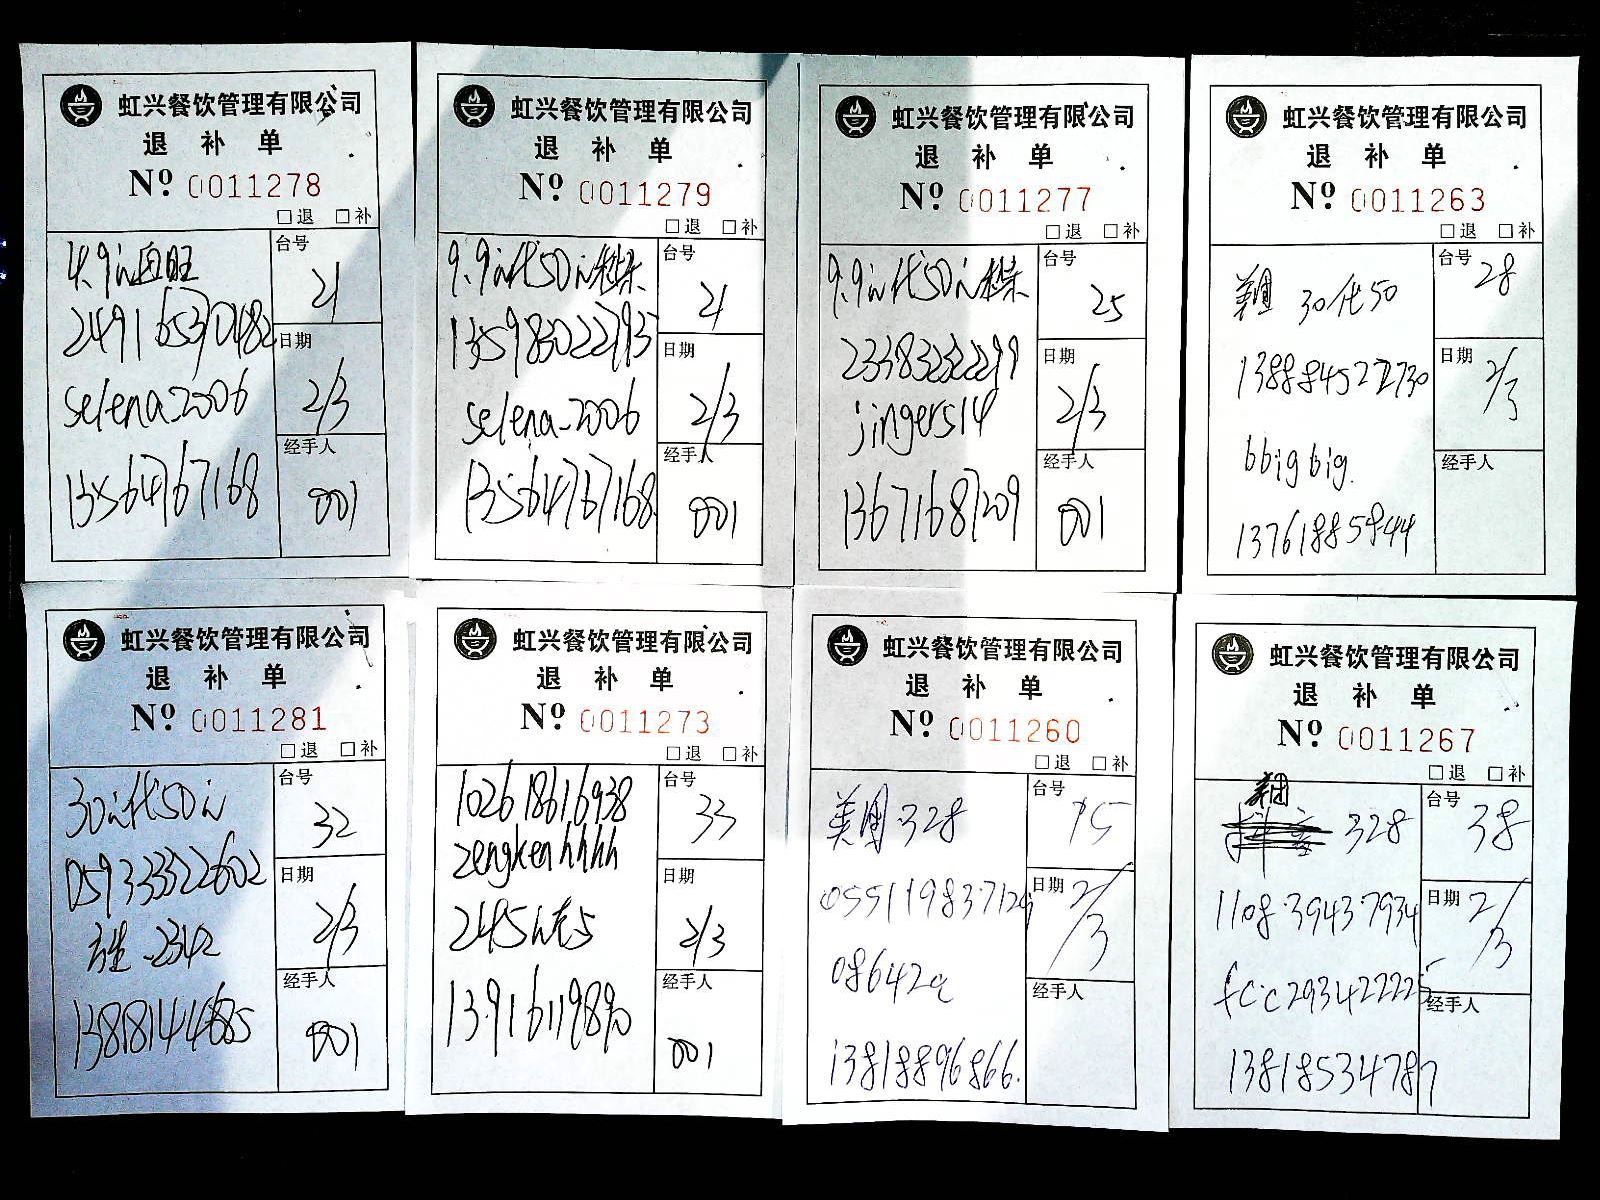 虹兴餐饮管理有限公司
退 补 单
Nº 0011278
□退 □补
4.9元血旺
249165390482
selena_2006
13564767168
台号
21
日期
2/3
经手人
001
虹兴餐饮管理有限公司
退 补 单
Nº 0011279
□退 □补
9.9元代50元
135983022793
selena_2006
13564767168
台号
21
日期
2/3
经手人
001
虹兴餐饮管理有限公司
退 补 单
Nº 0011277
□退 □补
9.9元代50元
jingers14
13671687209
台号
25
日期
2/3
经手人
001
虹兴餐饮管理有限公司
退 补 单
Nº 0011263
□退 □补
美团 30代50
138884522730
bbigbig.
13761885844
台号
28
日期
2/3
经手人
虹兴餐饮管理有限公司
退 补 单
Nº 0011281
□退 □补
30元代50元
059333322602
13881144685
台号
32
日期
2/3
经手人
001
虹兴餐饮管理有限公司
退 补 单
Nº 0011273
□退 □补
102618616938
zengkenhhhh
13916119890
台号
33
日期
2/3
经手人
001
虹兴餐饮管理有限公司
退 补 单
Nº 0011260
□退 □补
美團 328
08642a
13818896866.
台号
15
日期
2/3
经手人
虹兴餐饮管理有限公司
退 补 单
Nº 0011267
□退 □补
美团
328
1108 3943 7934
fcc293422225
13818534787
台号
38
日期
2/3
经手人